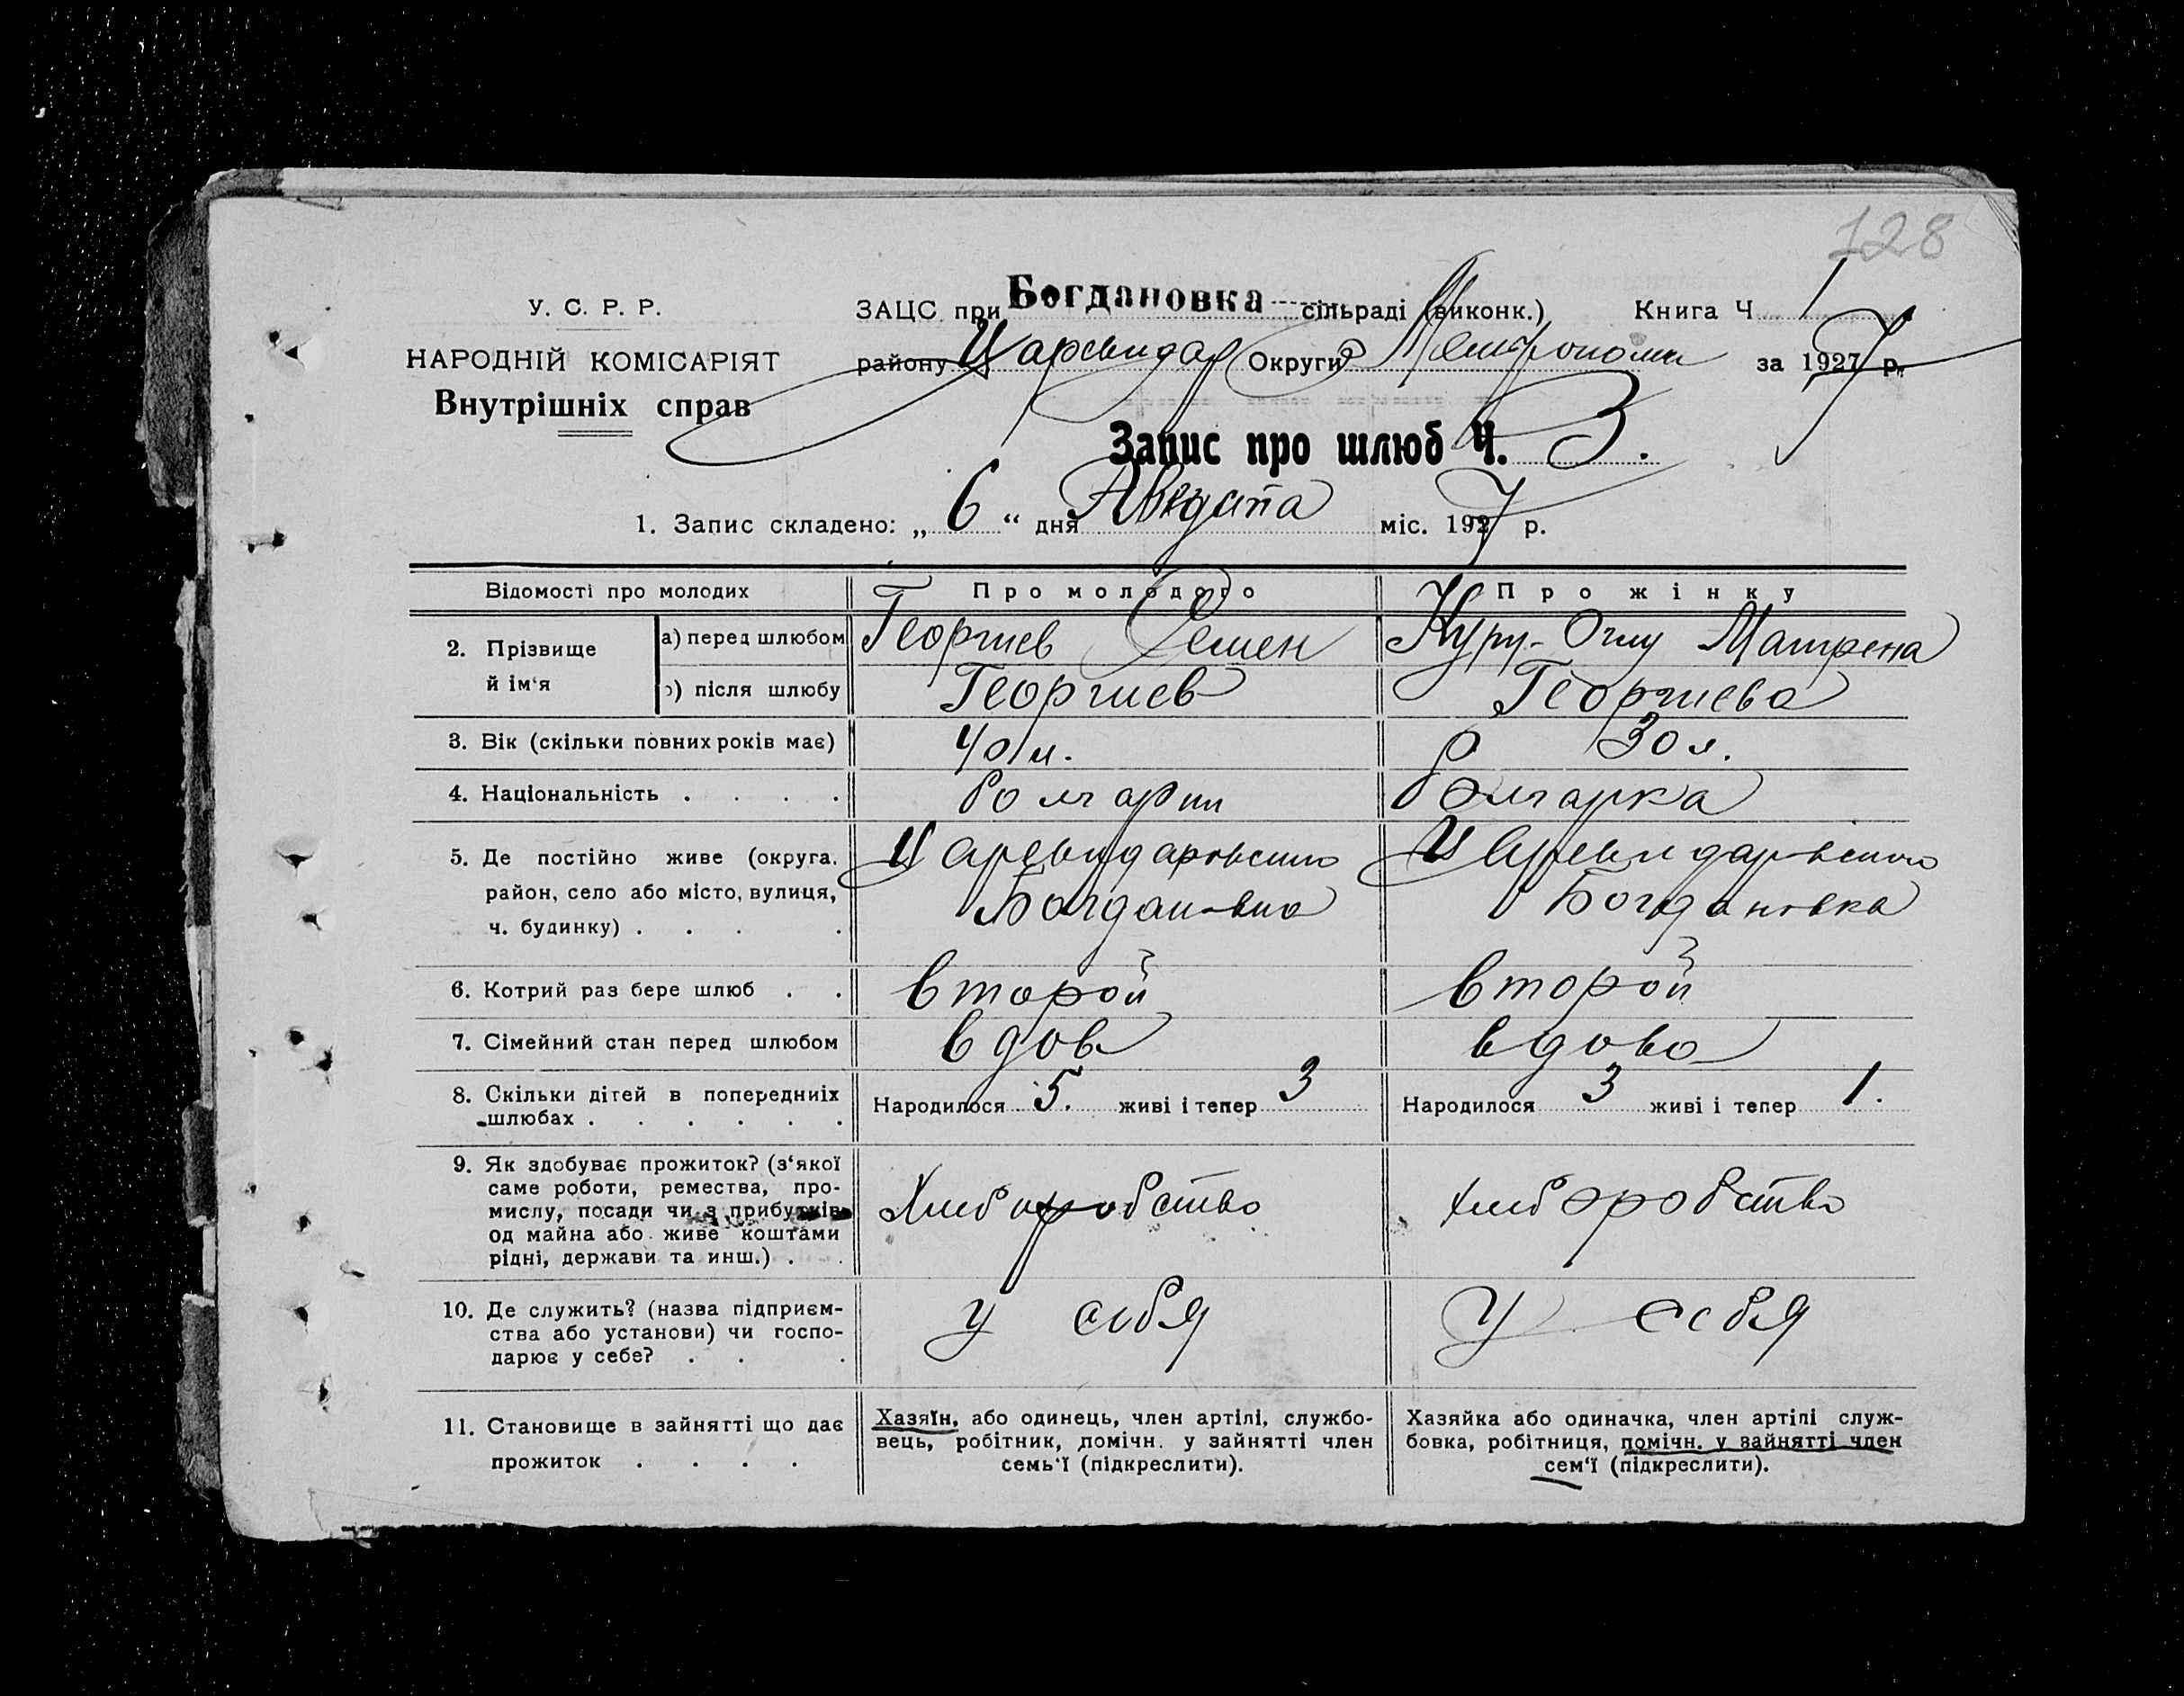 128
У. С. Р. Р.
НАРОДНІЙ КОМІСАРІЯТ
Внутрішніх справ
ЗАЦС при Богдановка сільраді (виконк.) Книга Ч 1
району Округи за 1927 р.
Запис про шлюб Ч. 3.
1. Запис складено: „ 6 “ дня Августа міс. 1927 р.
Відомості про молодих Про молодого Про жінку
2. Прізвище й ім‘я
а) перед шлюбом Георгиев Семен Куру-Оглу Матрена
б) після шлюбу Георгиев Георгиева
3. Вік (скільки повних років має) 40 л. 30 л.
4. Національність . . . . болгарин болгарка
5. Де постійно живе (округа.
район, село або місто, вулиця,
ч. будинку) . . . .
Богдановка
Богдановка
6. Котрий раз бере шлюб . . второй второй
7. Сімейний стан перед шлюбом вдов вдова
8. Скільки дітей в попередниіх
шлюбах . . . . . .
Народилося 5. живі і тепер 3
Народилося 3 живі і тепер 1.
9. Як здобуває прожиток? (з‘якої
саме роботи, ремества, про-
мислу, посади чи з прибутків
од майна або живе коштами
рідні, держави та инш.) . .
Хлиборобство
хлиборобство
10. Де служить? (назва підприєм-
ства або установи) чи госпо-
дарює у себе? . . .
у себя
у себя
11. Становище в зайнятті що дає
прожиток . . . .
Хазяїн, або одинець, член артілі, службо-
вець, робітник, помічн. у зайнятті член
семь‘ї (підкреслити).
Хазяйка або одиначка, член артілі служ-
бовка, робітниця, помічн. у зайнятті член
сем‘ї (підкреслити).